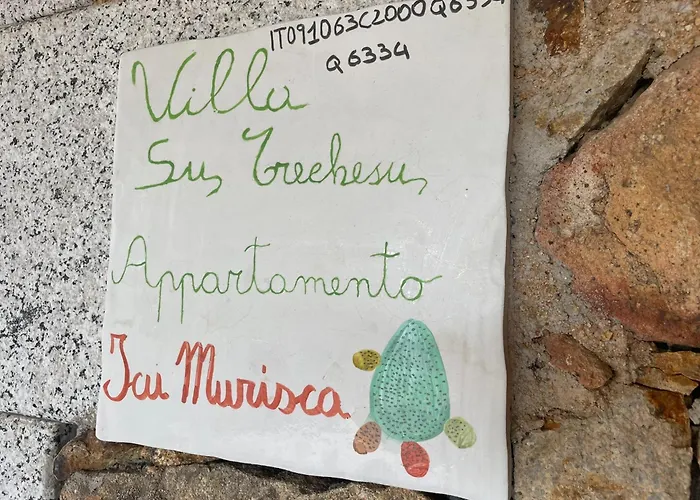 IT091063C2000Q6334
Q6334
Villa
Su, Trechesu,
Appartamento
Fai Murisca